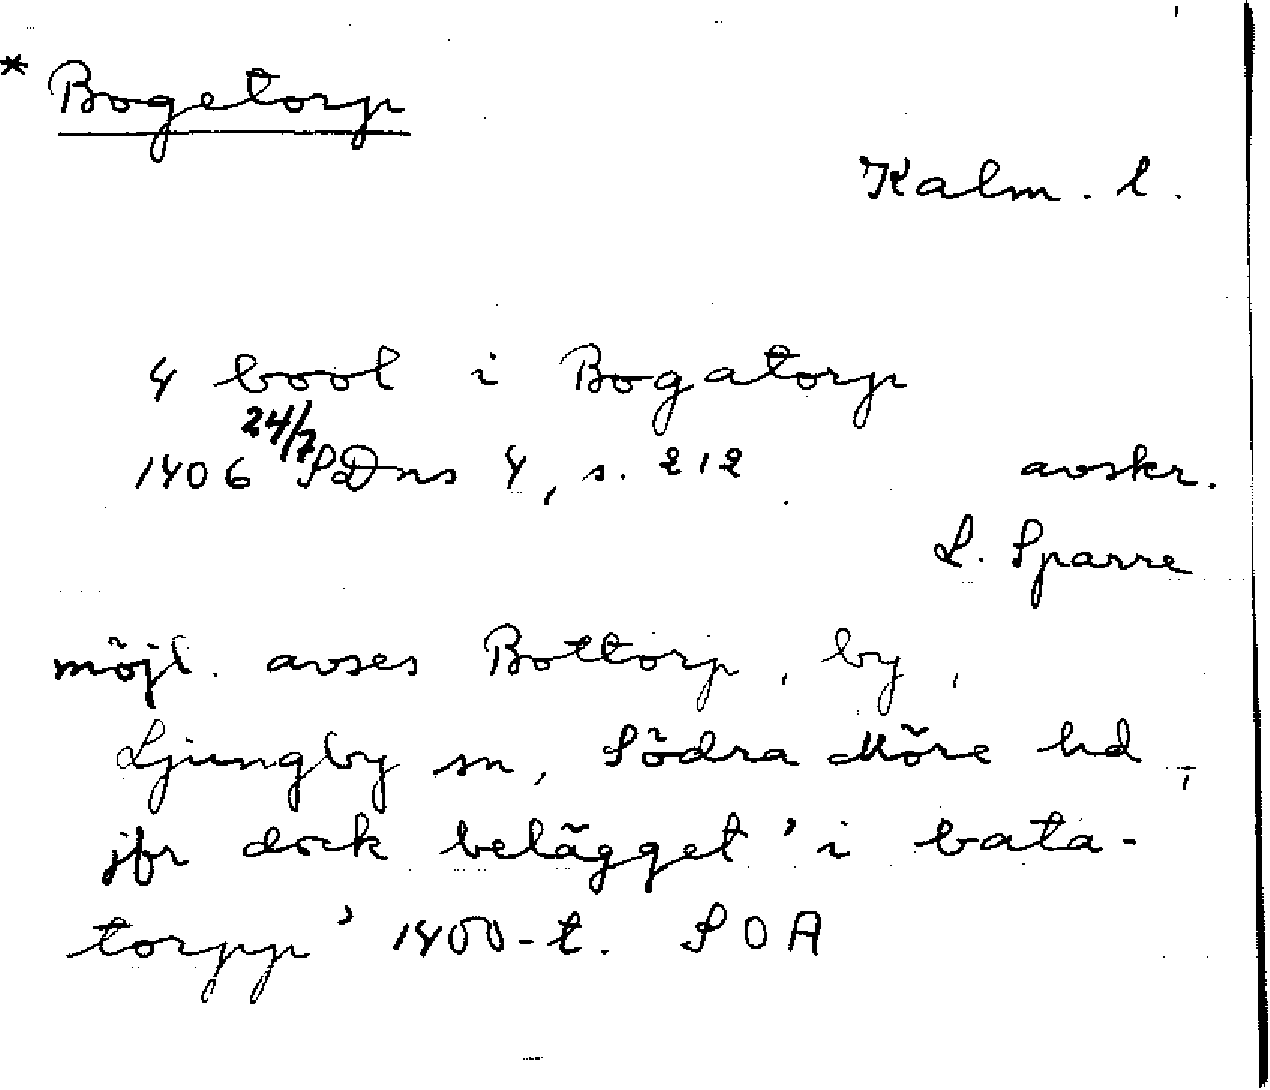 * Bogetorp
Kalm. l.
4 bool i Bogatorp
1406 24/7 SDns 4, s. 212 avskr.
L. Sparre
möjl. avses Bottorp, by,
Ljungby sn, Södra Möre hd,
jfr dock belägget 'i bata-
torpp' 1400-t. SOA